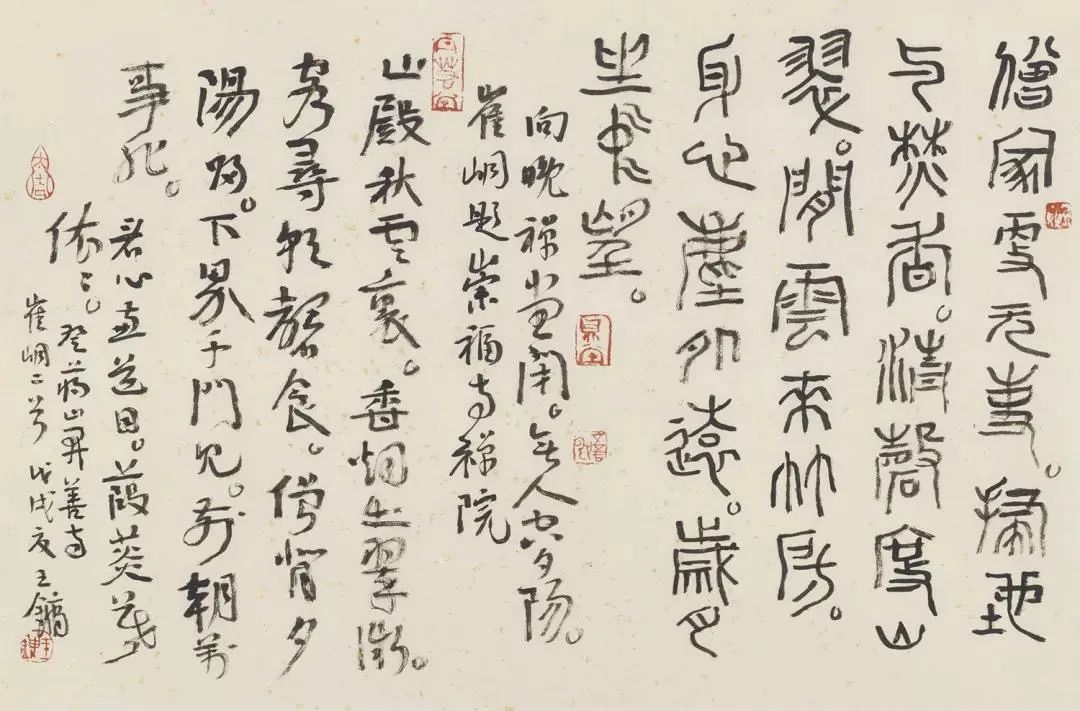 僧家更无事。掃地
与焚香。清磬度山
翠。閒雲来竹房。
身心塵外遠。歲月
坐中望。
向晚禅堂閉。無人空夕陽。
崔峒題崇福寺禅院
山殿秋雲裏。香烟出翠微。
客尋朝磬食。僧背夕
陽歸。下界千門见。前朝萬
事非。
看心兼送目。葭菼暮
依〻。登蒋山開善寺
崔峒二首 戊戌夏 王鏞